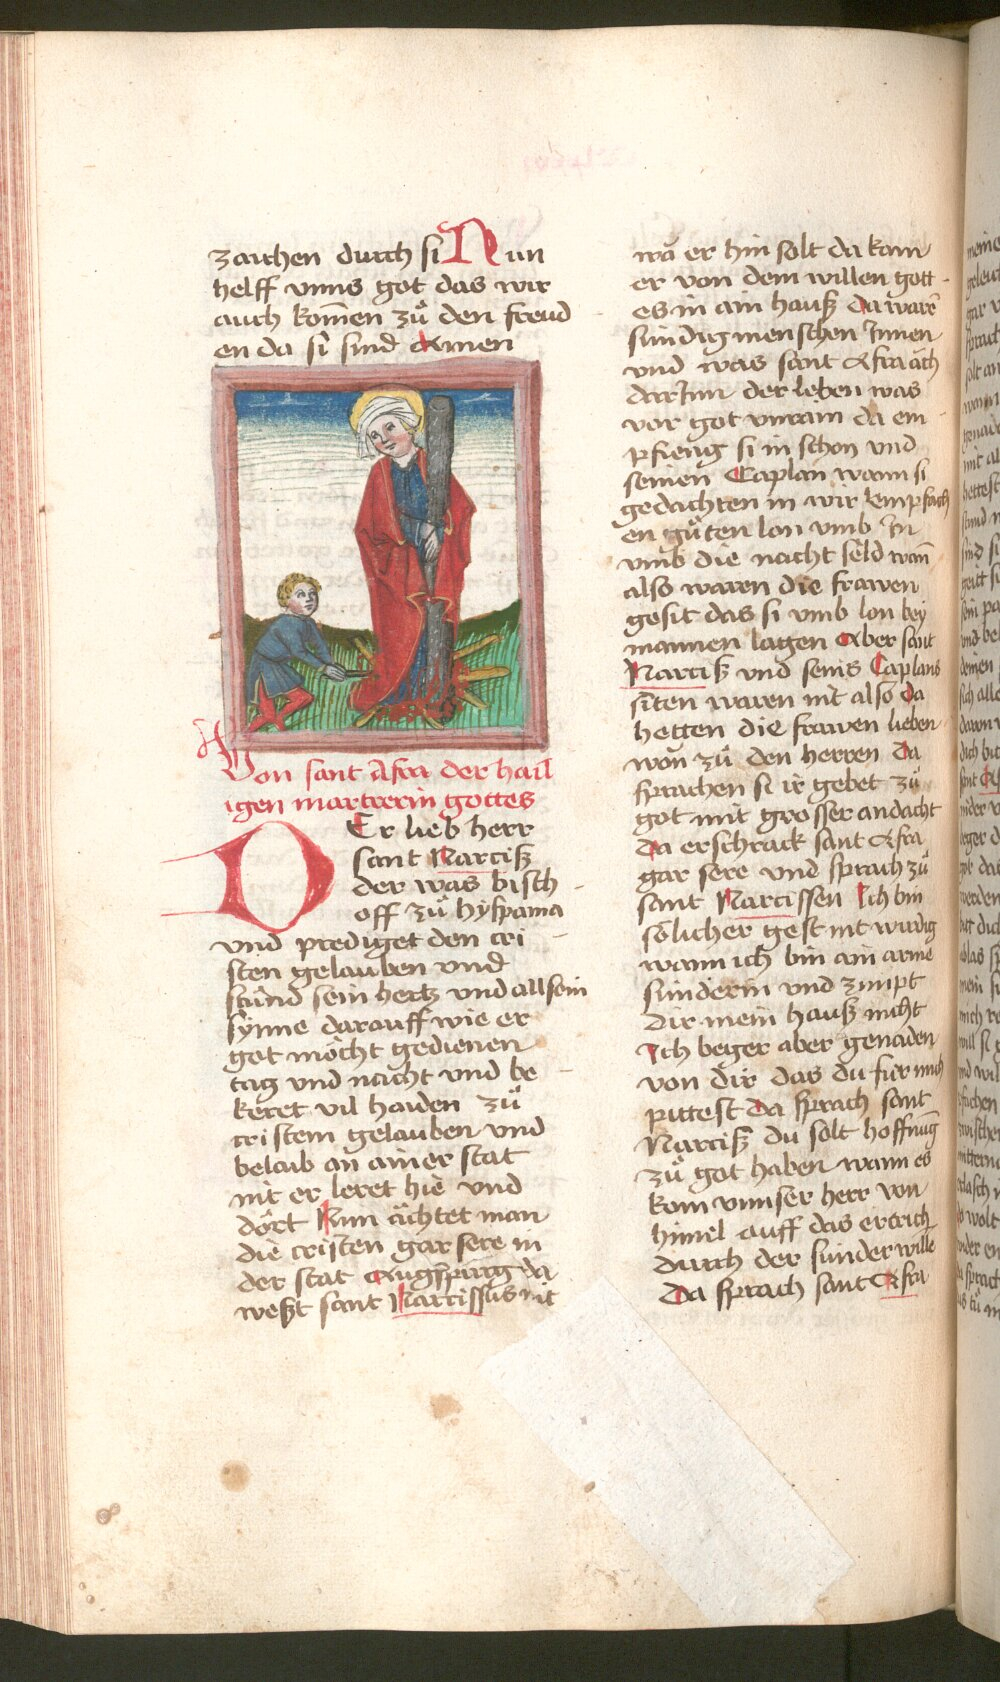 zaichen durch si Nun
helff vnns got das wir
auch kom̄en zuͦ den freud
en da si sind Amen
Von sant Afra der hail
igen martrerin gottes
Er lieb herr
sant Narciß
der was bisch
off zuͦ hyspania
vnd prediget den cri
sten gelauben vnd
stuͦnd sein hertz vnd all sein
synne darauff wie er
got möcht gedienen
tag vnd nacht vnd be
keret vil haiden zuͦ
cristem gelauben vnd
belaib an ainer stat
nit er leret hie vnd
dört Nun ächtet man
die cristen gar sere in
der stat Augspurg da
weßt sant Narcissus nit
wa er hin solt da kam
er von dem willen gott
es in ain hauß da waren̄
sündig menschen Innen
vnd was sant Afra ach
darJnn der leben was
vor got vnrain da em
pfieng si in schon vnd
seinen Caplan wann si
gedachten in wir empfach
en guͦten lon vmb In
vmb die nacht seld wan̄
also waren die frawen
gesit das si vmb lon bey
mannen lagen Aber sant
Narciß vnd seins Caplans
siten waren nit also da
hetten die frawen lieben
won zuͦ den herren Da
sprachen si ir gebet zuͦ
got mit grosser andacht
Da erschrack sant Afra
gar sere vnd sprach zuͦ
sant Narcissen Ich bin
sölicher gest nit wirdig
wann ich bin ain arme
sünderin vnd zimpt
dir mein hauß nicht
Ich beger aber genaden
von dir das du für mich
pittest Da sprach sant
Narciß du solt hoffnuḡ
zuͦ got haben wann es
kom vnnser herr von
himel auff das ertrich
durch der sünder wille
Da sprach sant Afra